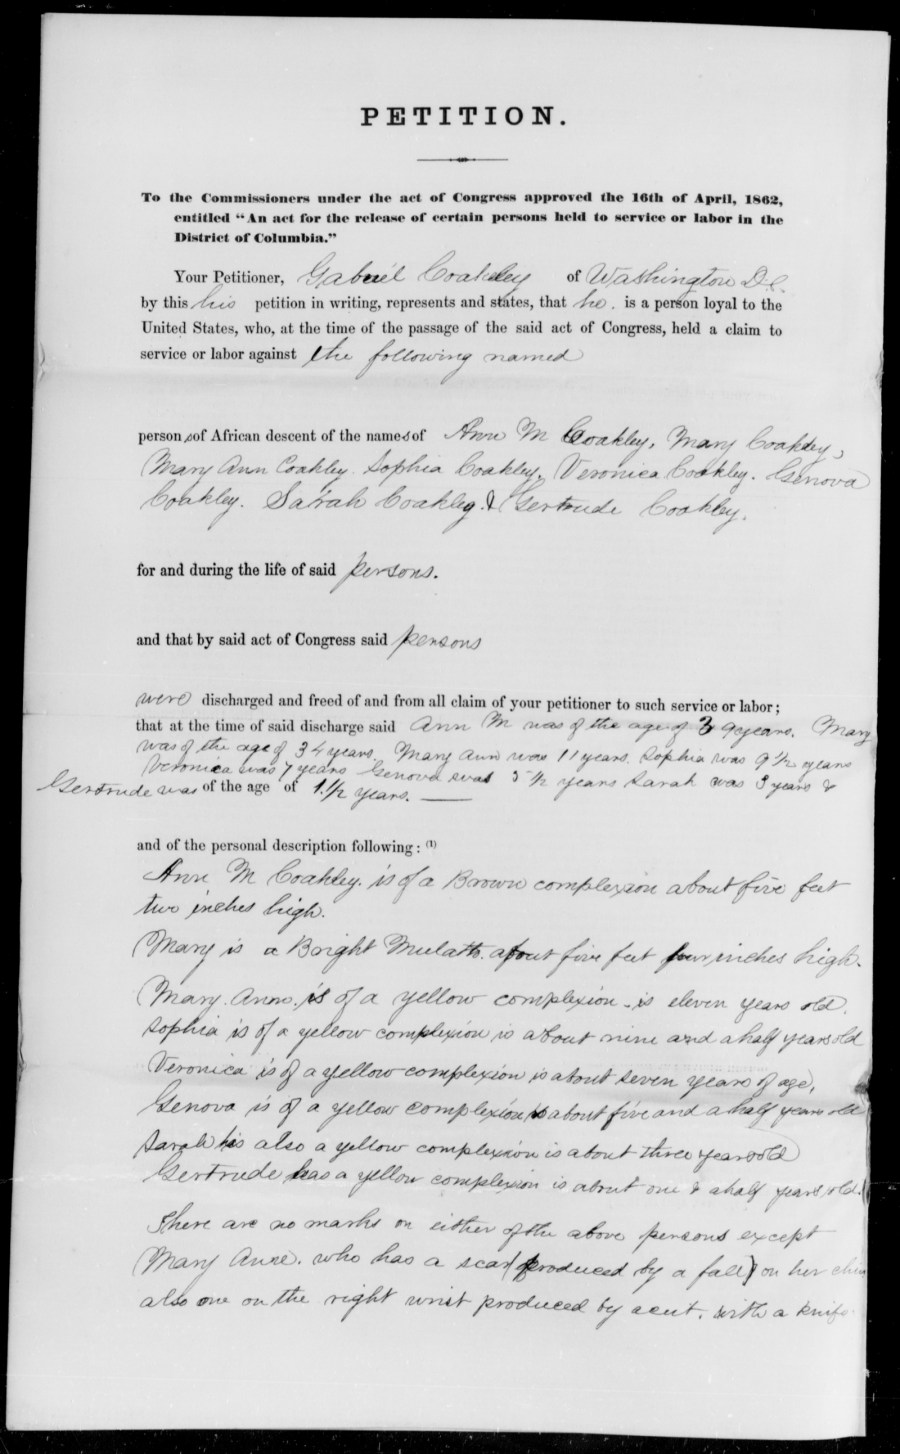 PETITION.
To the Commissioners under the act of Congress approved the 16th of April, 1862,
entitled “An act for the release of certain persons held to service or labor in the
District of Columbia.”
Your Petitioner, Gabriel Coakley of Washington D.C.
by this his petition in writing, represents and states, that he. is a person loyal to the
United States, who, at the time of the passage of the said act of Congress, held a claim to
service or labor against the following named
person s of African descent of the names of Ann M Coakley, Mary Coakley,
Mary Ann Coakley. Sophia Coakley, Veronica Coakley. Genova
Coakley. Sarah Coakley. & Gertrude Coakley.
for and during the life of said persons.
and that by said act of Congress said persons
were discharged and freed of and from all claim of your petitioner to such service or labor;
that at the time of said discharge said Ann M was of the age of 39 years. Mary
was of the age of 34 years. Mary Ann was 11 years. Sophia was 9 1/2 years
Veronica was 7 years Genova was 5 1/2 years Sarah was 3 years &
Gertrude was of the age of 1 1/2 years.
and of the personal description following: (1)
Ann M Coakley. is of a Brown complexion about five feet
two inches high.
Mary is a Bright Mulatto. about five feet four inches high.
Mary. Ann. is of a yellow complexion - is eleven years old.
Sophia is of a yellow complexion is about nine and a half years old
Veronica is of a yellow complexion is about seven years of age,
Genova is of a yellow complexion is about five and a half years old
Sarah is also a yellow complexion is about three years old
Gertrude has a yellow complexion is about one & a half years old.
There are no marks on either of the above persons except
Mary Anne. who has a scar (produced by a fall) on her chin
also one on the right wrist produced by a cut. with a knife